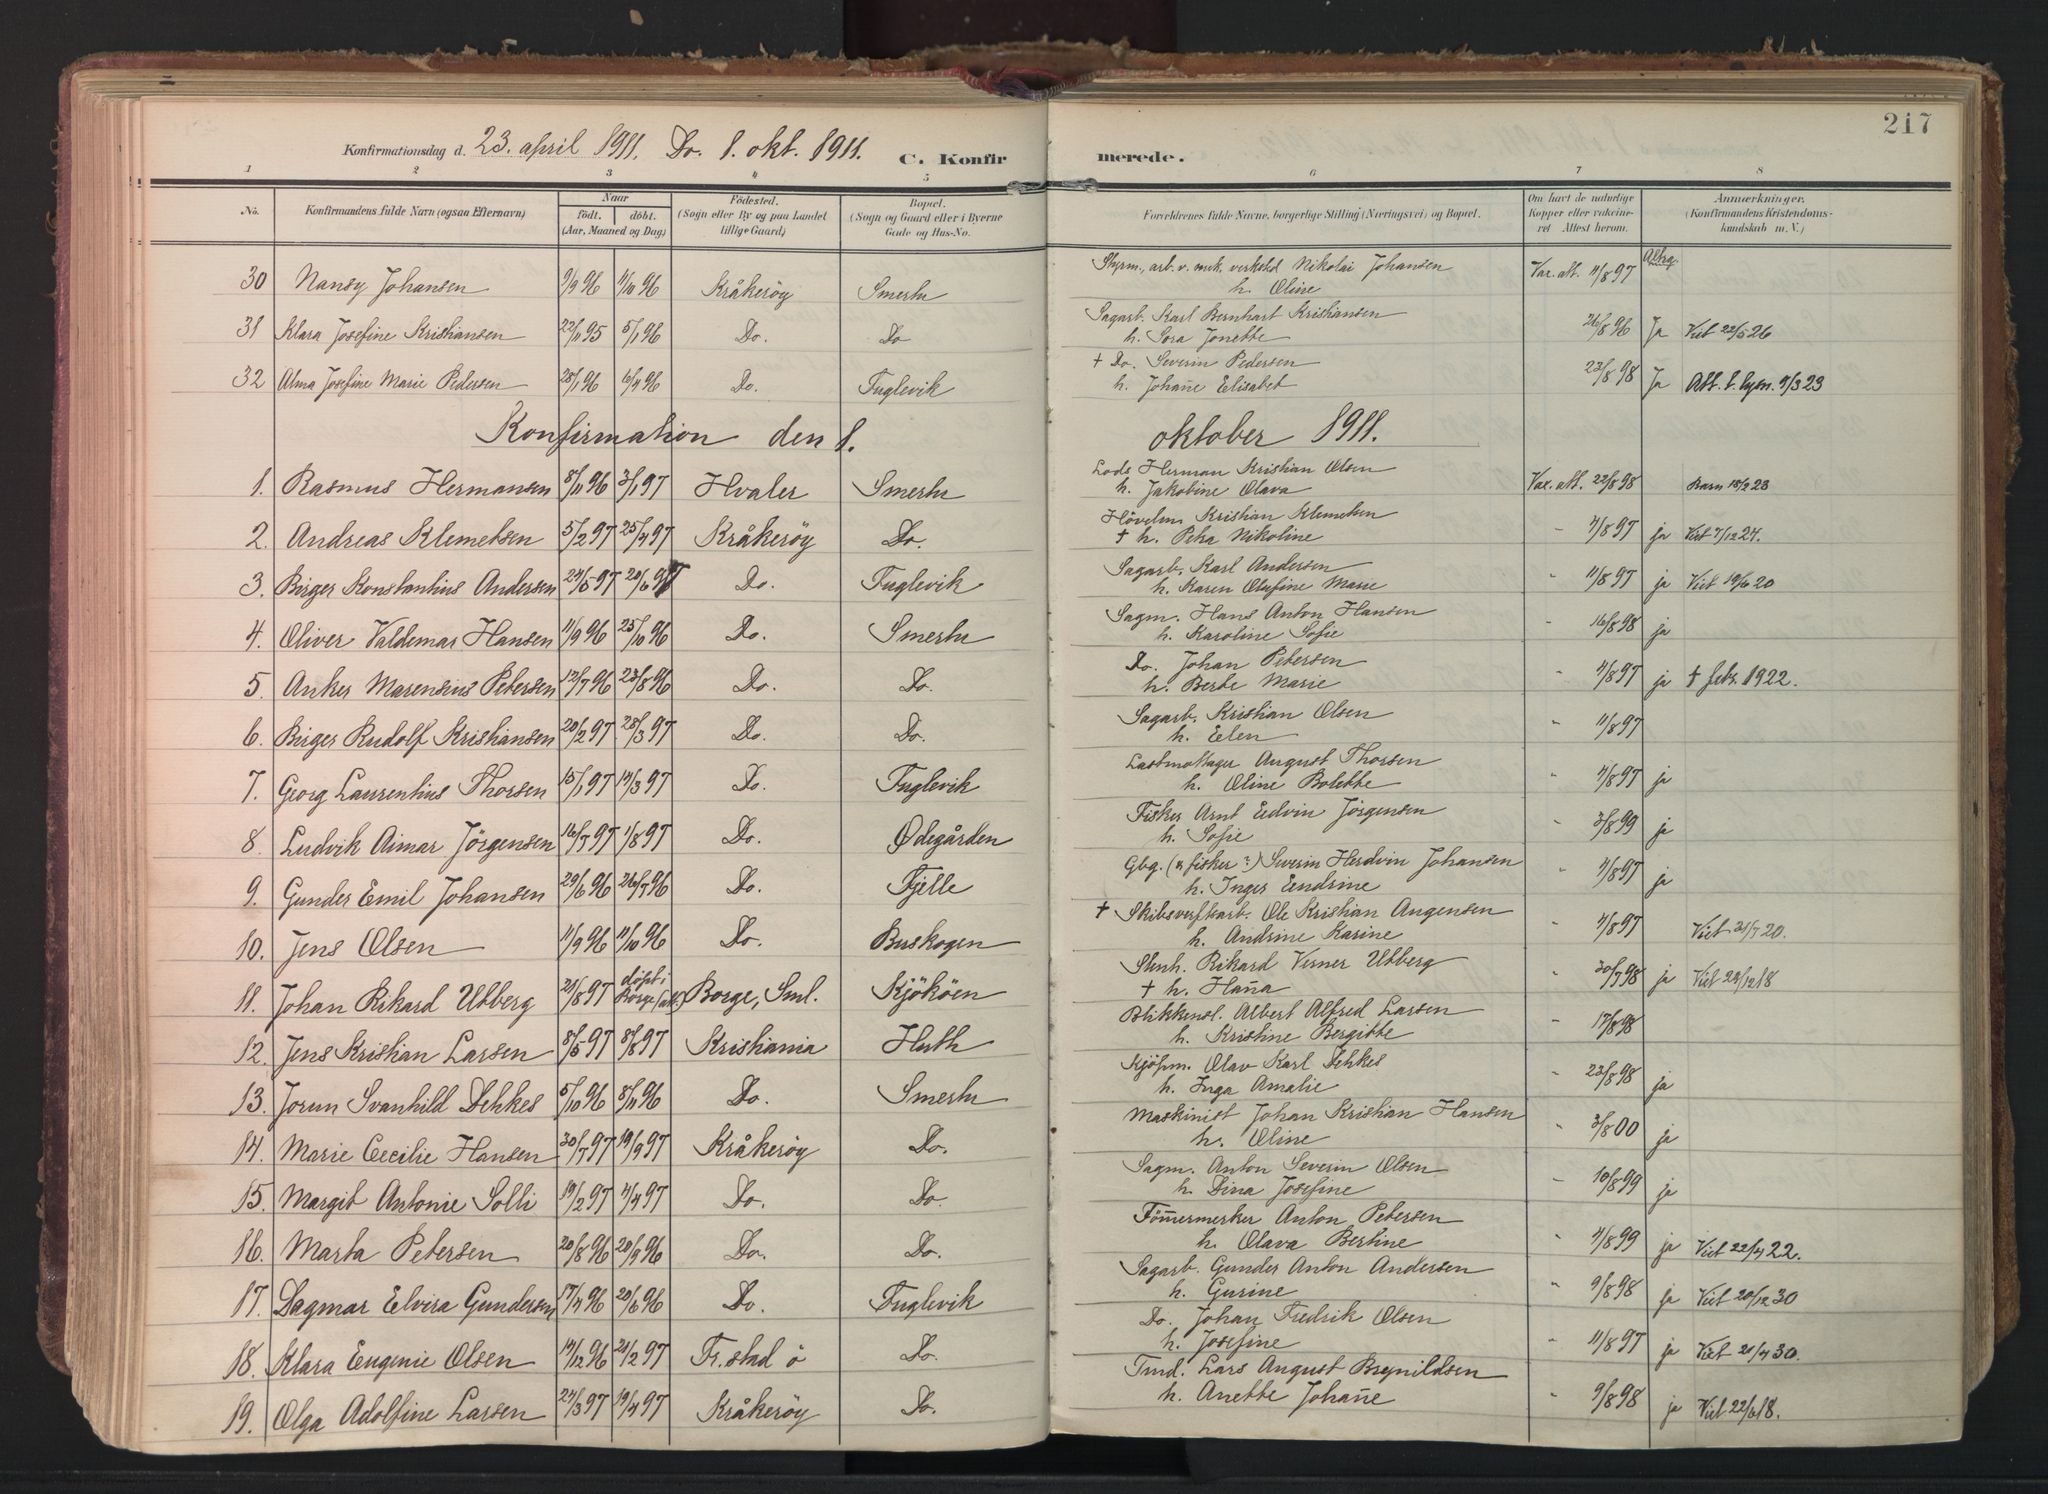 217
Konfirmationsdag d. 23. april 1911. Do. 1. okt. 1911. C. Konfirmerede.
1 2 3 4 5 6 7 8
No. Konfirmandens fulde Navn (ogsaa Efternavn) Naar födt. döbt. (Aar, Maaned og Dag) Födested. (Sogn eller By og paa Landet tillige Gaard) Bopæl. (Sogn og Gaard eller i Byerne Gade og Hus-No. Forældrenes fulde Navne, borgerlige Stilling (Næringsvei) og Bopæl. Om havt de naturlige Kopper eller vakcineret Attest herom. Anmærkninger. (Konfirmandens Kristendomskundskab m. V.)
30 Nansy Johansen 9/9 96 11/10 96 Kråkeröy Smertu Styrm., arb. v. mek. verksted Nikolai Johansen Vac. att. 11/8 97
h. Oline
31 Klara Josefine Kristiansen 22/11 95 5/1 96 Do. Do Sagarb. Karl Bernhart Kristiansen 26/8 96 Ja Viet 22/5 26
h. Sora Jonette
32 Alma Josefine Marie Pedersen 28/1 96 6/4 96 Do. Fuglevik † Do. Severin Pedersen 23/8 98 Ja Att. t. lysn. 9/3 23
h. Johanne Elisabet
Konfirmation den 1. oktober 1911.
1. Rasmus Hermansen 8/11 96 3/1 97 Hvaler Smertu Lods Herman Kristian Olsen Vac. att. 22/8 98 Barn 18/2 23
h. Jakobine Olava
2. Andreas Klemetsen 5/2 97 25/4 97 Kråkeröy Do. Hövelm. Kristian Klemetsen " 4/8 97 ja Viet 7/12 24.
† h. Petra Nikoline
3. Birger Konstantius Andersen 24/5 97 20/6 97 Do. Fuglevik Sagarb. Karl Andersen " 11/8 97 ja Viet 19/6 20
h. Karen Olufine Marie
4. Oliver Valdemar Hansen 11/9 96 25/10 96 Do. Smertu Sagm. Hans Anton Hansen " 16/8 98 ja
h. Karoline Sofie
5. Anker Marensius Petersen 12/7 96 23/8 96 Do. Do. Do. Johan Petersen " 4/8 97 ja † febr. 1922.
h. Berte Marie
6. Birger Rudolf Kristiansen 20/2 97 28/3 97 Do. Do. Sagarb. Kristian Olsen " 11/8 97
h. Elen
7. Georg Laurentius Thorsen 15/1 97 14/3 97 Do. Fuglevik Lastmottager August Thorsen " 4/8 97 ja
h. Oline Bolette
8. Ludvik Aimar Jörgensen 16/7 97 1/8 97 Do. Ødegården Fisker Arnt Edvin Jörgensen " 3/8 99 ja
h. Sofie
9. Gunder Emil Johansen 29/6 96 26/7 96 Do. Fjelle Gbg. (n fisker?) Severin Herdvin Johansen " 4/8 97 ja
h. Inger Endrine
10. Jens Olsen 11/9 96 11/10 96 Do. Buskogen † Skibsverftsarb. Ole Kristian Angensen " 4/8 97 Viet 21/7 20.
h. Andrine Karine
11. Johan Rikard Utberg 21/8 97 döpt i Borge (att.) Borge, Sml. Kjököen Stenh. Rikard Verner Utberg " 30/7 98 ja Viet 29/12 18
† h. Hanna
12. Jens Kristian Larsen 8/5 97 8/8 97 Kristiania Huth Blikkensl. Albert Alfred Larsen " 17/8 98
h. Kristine Bergitte
13. Jorun Svanhild Dehkes 5/10 96 8/11 96 Do. Smertu Kjöpm. Olav Karl Dehkes " 23/8 98 ja
h. Inga Amalie
14. Marie Cecilie Hansen 30/7 97 19/9 97 Kråkeröy Do. Maskinist Johan Kristian Hansen " 3/8 00 ja
h. Oline
15. Margit Antonie Solli 19/2 97 4/4 97 Do. Do. Sagm. Anton Severin Olsen " 10/8 99 ja
h. Dina Josefine
16. Marta Petersen 20/8 96 20/9 96 Do. Do. Tömmermerker Anton Petersen " 4/8 99 ja Viet 22/4 22.
h. Olava Bertine
17. Dagmar Elvira Gundersen 17/4 96 20/6 96 Do. Fuglevik Sagarb. Gunder Anton Andersen " 9/8 98 ja Viet 20/12 30
h. Gurine
18. Klara Eugenie Olsen 14/12 96 21/2 97 Fr.stad ö Do. Do. Johan Fredrik Olsen " 11/8 97 ja Viet 21/4 30.
h. Josefine
19. Olga Adolfine Larsen 24/3 97 19/4 97 Kråkeröy Do. Tmd. Lars August Brynildsen " 9/8 98 ja Viet 22/6 18.
h. Anette Johanne